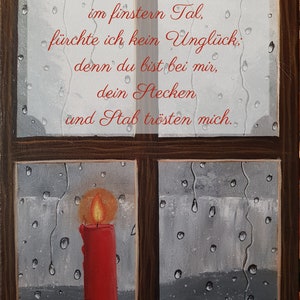 im finstern Tal,
fürchte ich kein Unglück;
denn du bist bei mir,
dein Stecken
und Stab trösten mich..